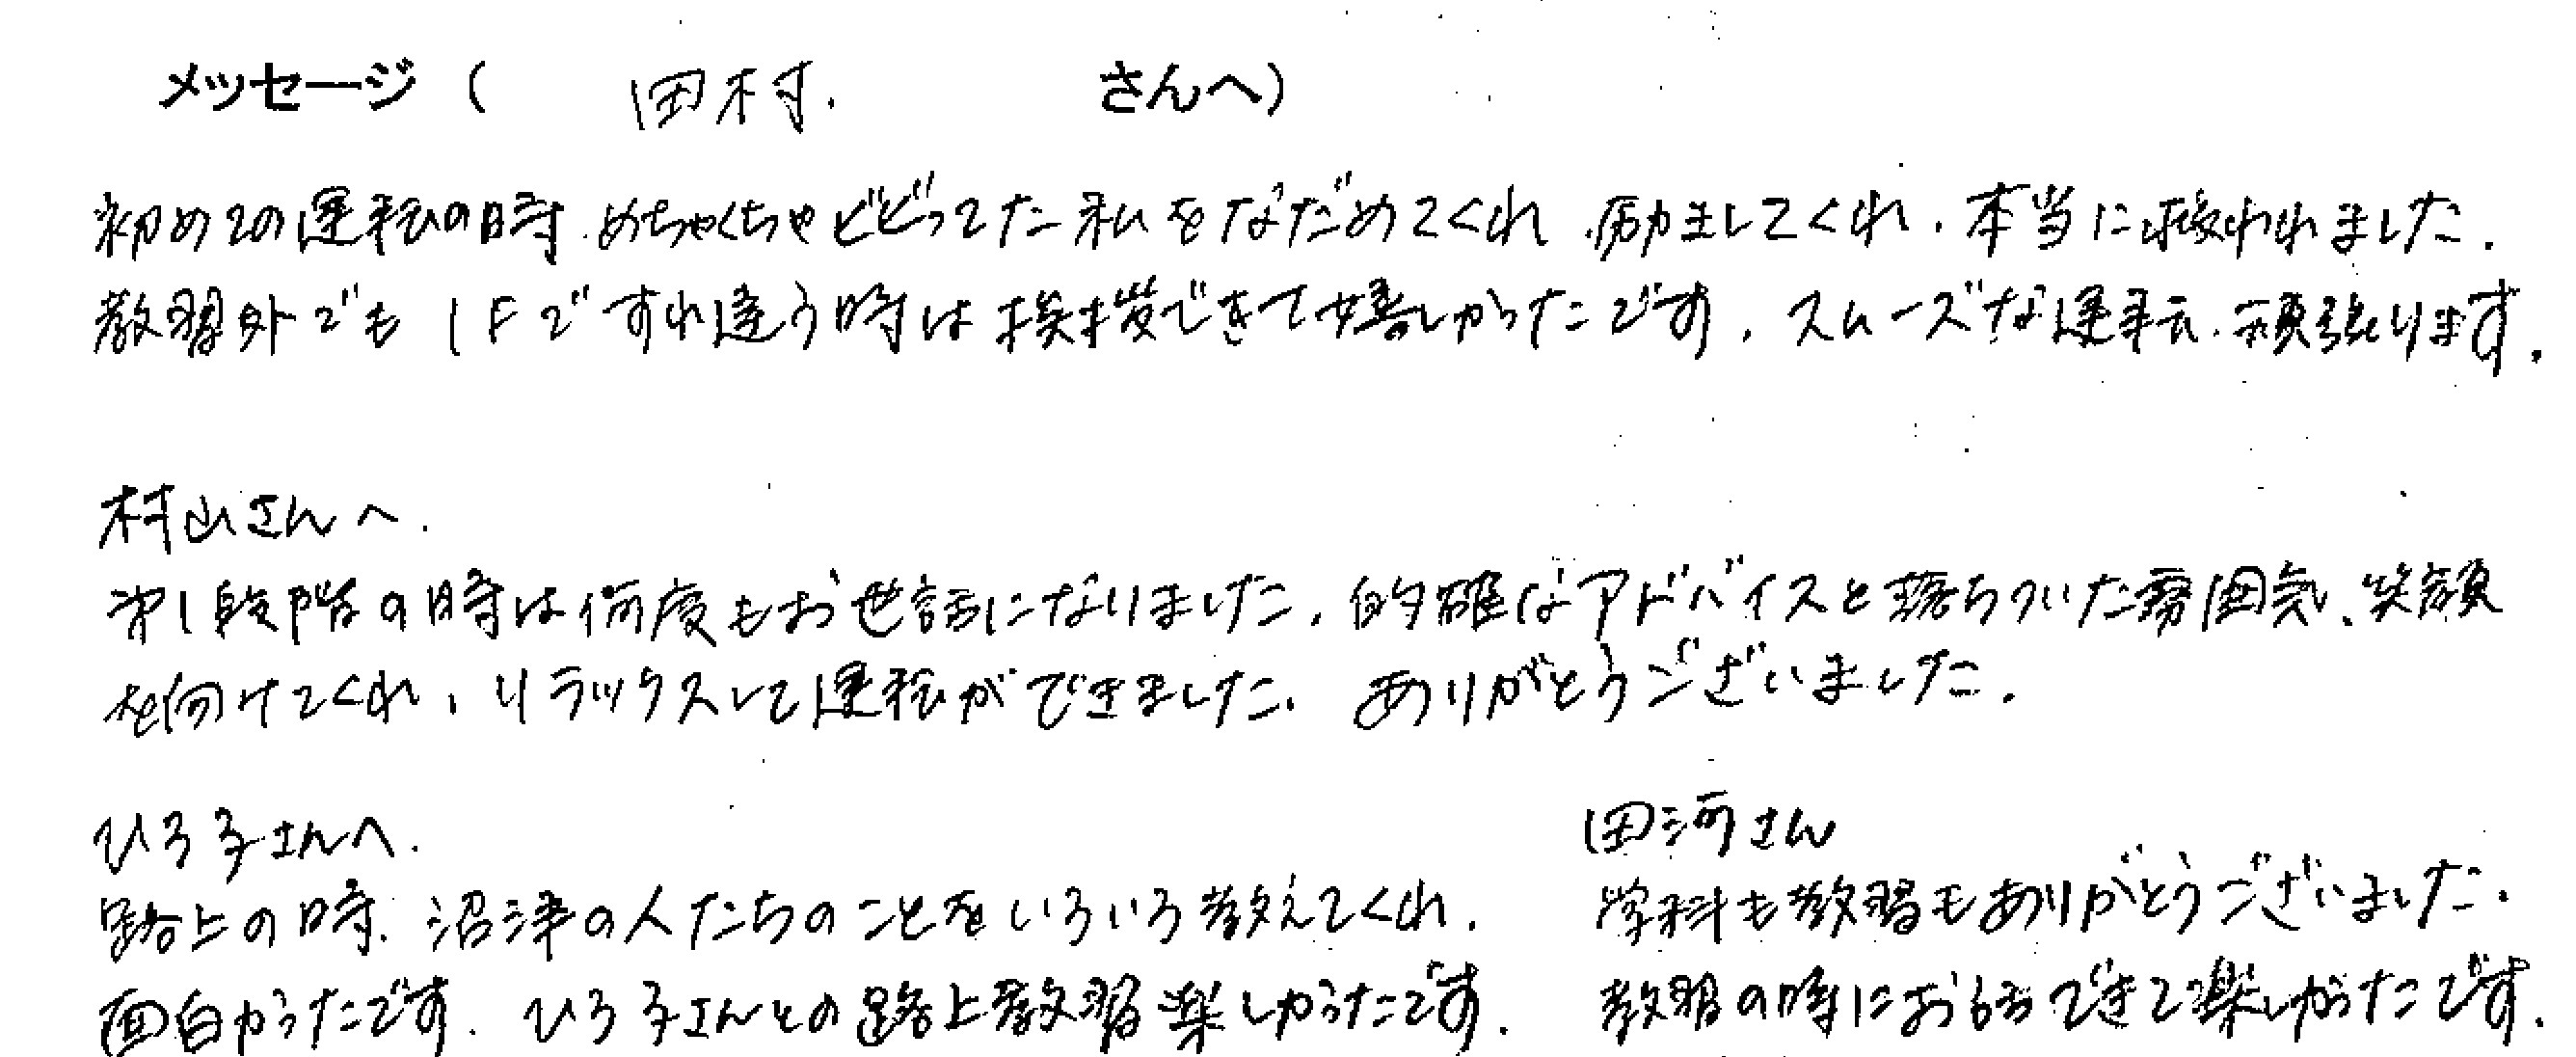 メッセージ（ 田村. さんへ）
初めての運転の時.めちゃくちゃビビってた私をなだめてくれ.励ましてくれ.本当に救われました.
教習外でも1Fですれ違う時は挨拶できて嬉しかったです.スムーズな運転.頑張ります.
村山さんへ.
第1段階の時は何度もお世話になりました.的確なアドバイスと落ちついた雰囲気.笑顔
を向けてくれ.リラックスして運転ができました.ありがとうございました.
ひろ子さんへ.
路上の時.沼津の人たちのことをいろいろ教えてくれ.
面白かったです.ひろ子さんとの路上教習楽しかったです.
田河さん
学科も教習もありがとうございました.
教習の時にお話できて楽しかったです.